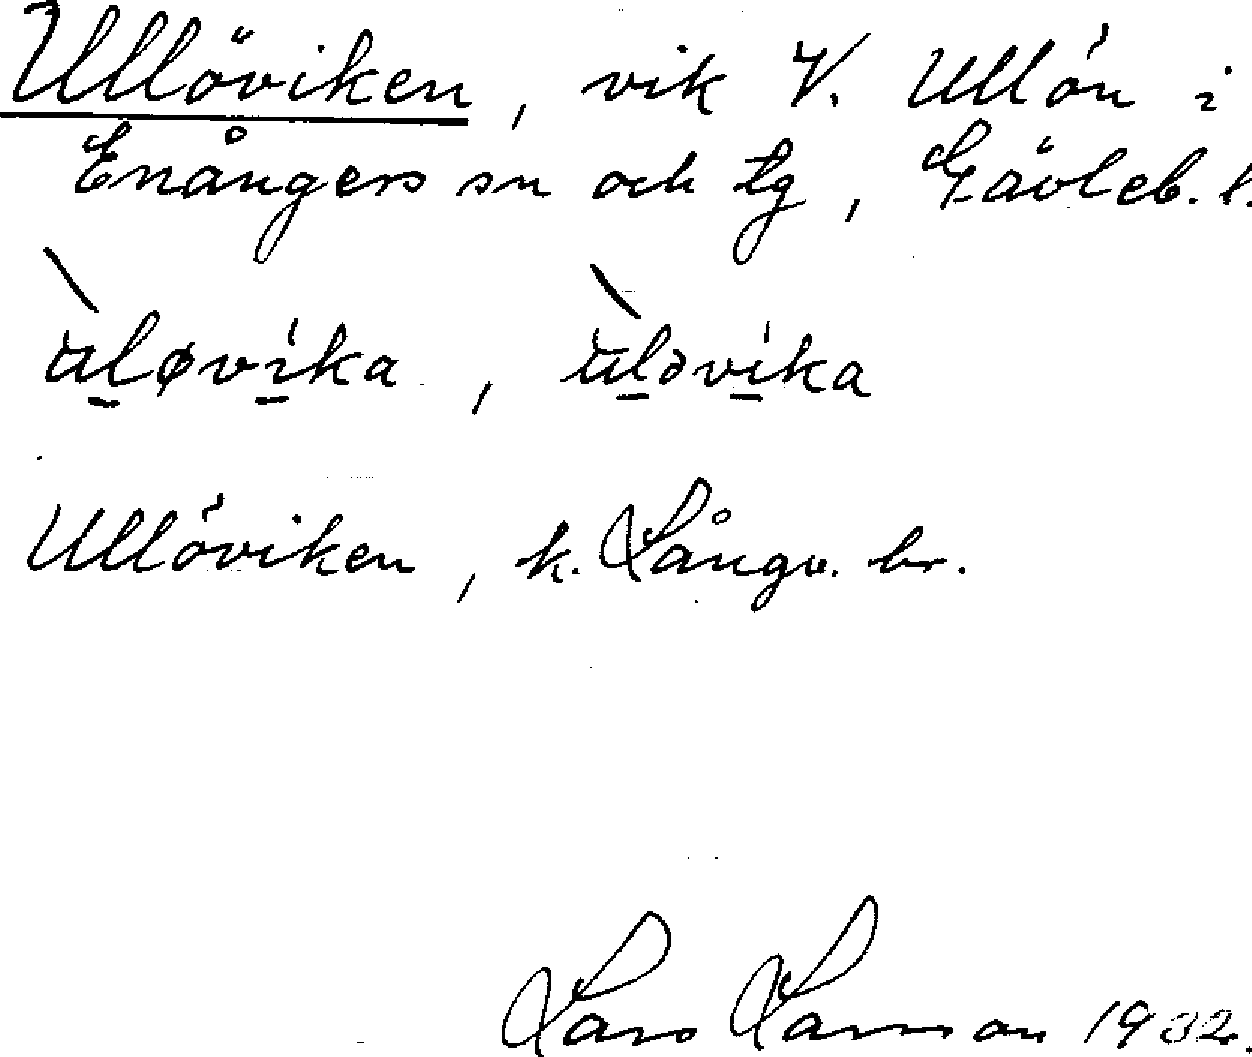 Ullöviken, vik V. Ullön i
Enångers sn och tg, Gävleb. l.
ùløvika, ùləvika
Ullöviken, k. Långv. br.
Lars Larsson 1932.